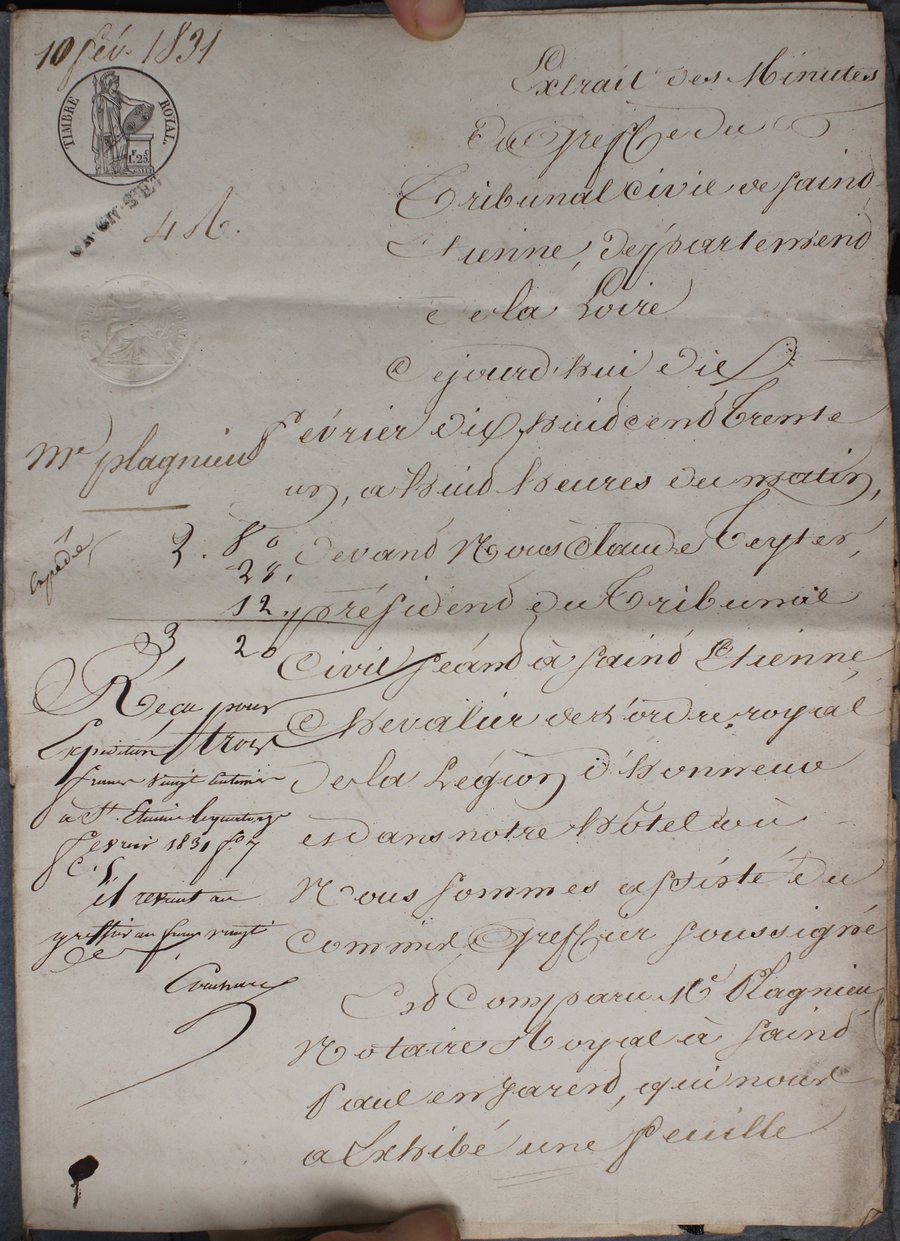 10 fév. 1831
TIMBRE ROYAL.
1.25
4 R.
Extrait des Minutes
du Greffe du
Tribunal Civil de saint
Etienne, département
de la Loire
Cejourd'hui dix
février dix huit cent trente
un, a huit heures du matin,
devant Nous Claude Teyter,
président du Tribunal
Civil séant à saint Etienne,
Chevalier de l'ordre royal
de la Légion d'honneur
et dans notre hôtel où
Nous sommes assisté du
commis Greffier soussigné
Est Comparu Me Plagnieu
Notaire Royal à saint
Paul en Jarend, qui nous
a Exhibé une feuille
Me plagnieu
Expéd
2. 80
28,
12,
3 20
Récu pour
Expédition trois
francs vingt centimes
à St. Etienne le quatorze
fevrier 1831 fo 7
C. 5
il revient au
greffier un franc vingt